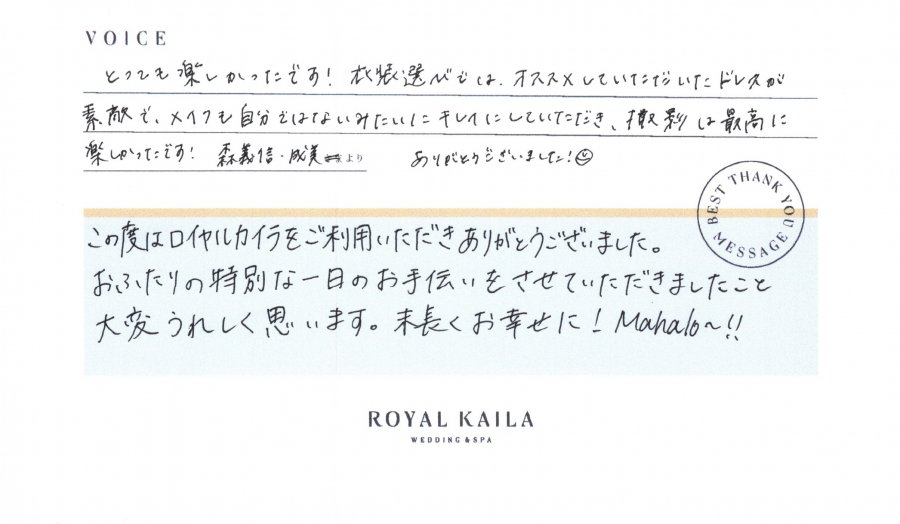 VOICE
とっても楽しかったです!衣装選びでは、オススメしていただいたドレスが
素敵で、メイクも自分ではないみたいにキレイにしていただき、撮影は最高に
楽しかったです! 森義信・成美 より ありがとうございました!
BEST THANK YOU MESSAGE
この度はロイヤルカイラをご利用いただきありがとうございました。
おふたりの特別な一日のお手伝いをさせていただきましたこと
大変うれしく思います。末長くお幸せに! Mahalo~!!
ROYAL KAILA
WEDDING & SPA